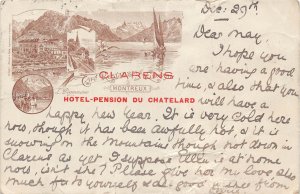 Dec: 29th
CLARENS
MONTREUX
HOTEL-PENSION DU CHATELARD
Dear May,
I hope you
are having a good
time, & also that you
will have a
happy new year. It is very cold here
now, though it has been awfully hot, & it is
snowing on the mountains though not down in
Clarens as yet I suppose Ellen is at home
now, isn't she? Please give her my love also
much to yourself &